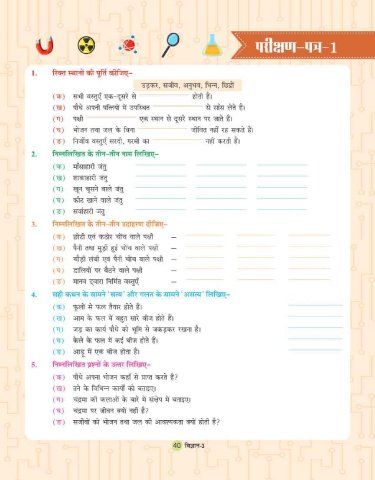 परीक्षण-पत्र-1
1. रिक्त स्थानों की पूर्ति कीजिए–
उड़कर, सजीव, अनुभव, भिन्न, छिद्रों
(क) सभी वस्तुएँ एक-दूसरे से होती हैं।
(ख) पौधे अपनी पत्तियों में उपस्थित से साँस लेते हैं।
(ग) पक्षी एक स्थान से दूसरे स्थान पर जाते हैं।
(घ) भोजन तथा जल के बिना जीवित नहीं रह सकते हैं।
(ङ) निर्जीव वस्तुएँ सरदी, गरमी का नहीं करती हैं।
2. निम्नलिखित के तीन-तीन नाम लिखिए–
(क) मांसाहारी जंतु
(ख) शाकाहारी जंतु
(ग) खून चूसने वाले जंतु
(घ) कीट खाने वाले जंतु
(ङ) सर्वाहारी जंतु
3. निम्नलिखित के तीन-तीन उदाहरण दीजिए–
(क) छोटी एवं कठोर चोंच वाले पक्षी –
(ख) पैनी तथा मुड़ी हुई चोंच वाले पक्षी –
(ग) चौड़ी लंबी एवं पैनी चोंच वाले पक्षी –
(घ) डालियों पर बैठने वाले पक्षी –
(ङ) मानव द्वारा निर्मित वस्तुएँ –
4. सही कथन के सामने 'सत्य' और गलत के सामने 'असत्य' लिखिए–
(क) फूलों से फल तैयार होते हैं।
(ख) आम के फल में बहुत सारे बीज होते हैं।
(ग) जड़ का कार्य पौधे को भूमि से जकड़कर रखना है।
(घ) केले के फल में कई बीज होते हैं।
(ङ) आड़ू में एक बीज होता है।
5. निम्नलिखित प्रश्नों के उत्तर लिखिए–
(क) पौधे अपना भोजन कहाँ से प्राप्त करते हैं?
(ख) तने के विभिन्न कार्यों को बताइए।
(ग) चंद्रमा की कलाओं के बारे में संक्षेप में बताइए।
(घ) चंद्रमा पर जीवन क्यों नहीं है?
(ङ) सजीवों को भोजन तथा जल की आवश्यकता क्यों होती है?
40 विज्ञान-3